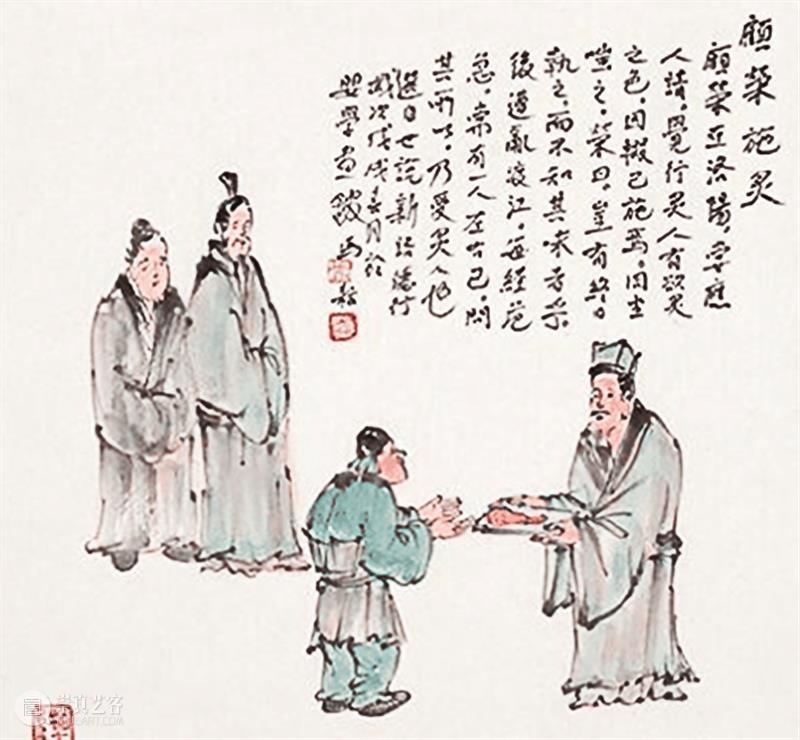 顧榮施炙
顧榮在洛陽，嘗應
人請，覺行炙人有欲炙
之色，因輟己施焉，同坐
嗤之，榮曰，豈有終日
執之，而不知其味者乎，
後遭亂渡江，每經危
急，常有一人左右己，問
其所以，乃受炙人也
選自世說新語德行
歲次戊戌春月於
崇真艺客